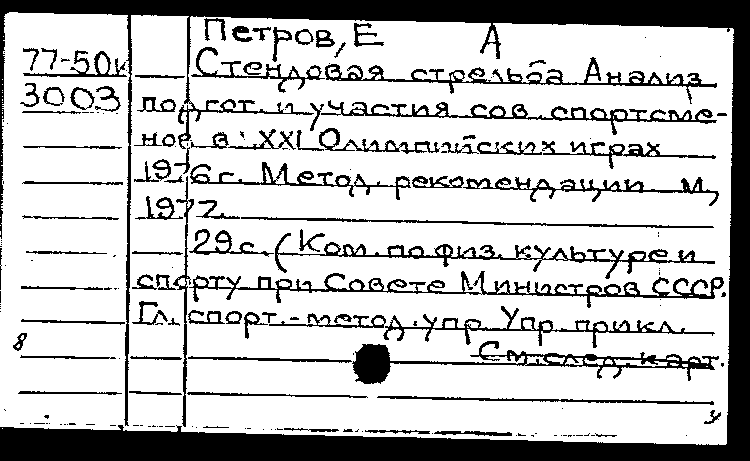 Петров, Е А
77-50к Стендовая стрельба Анализ
3003 подгот. и участия сов. спортсме-
нов в XXI Олимпийских играх
1976 г. Метод. рекомендации М,
1977.
29с. (Ком. по физ. культуре и
спорту при Совете Министров СССР.
Гл. спорт.-метод. упр. Упр. прикл.
8
См. след. карт.